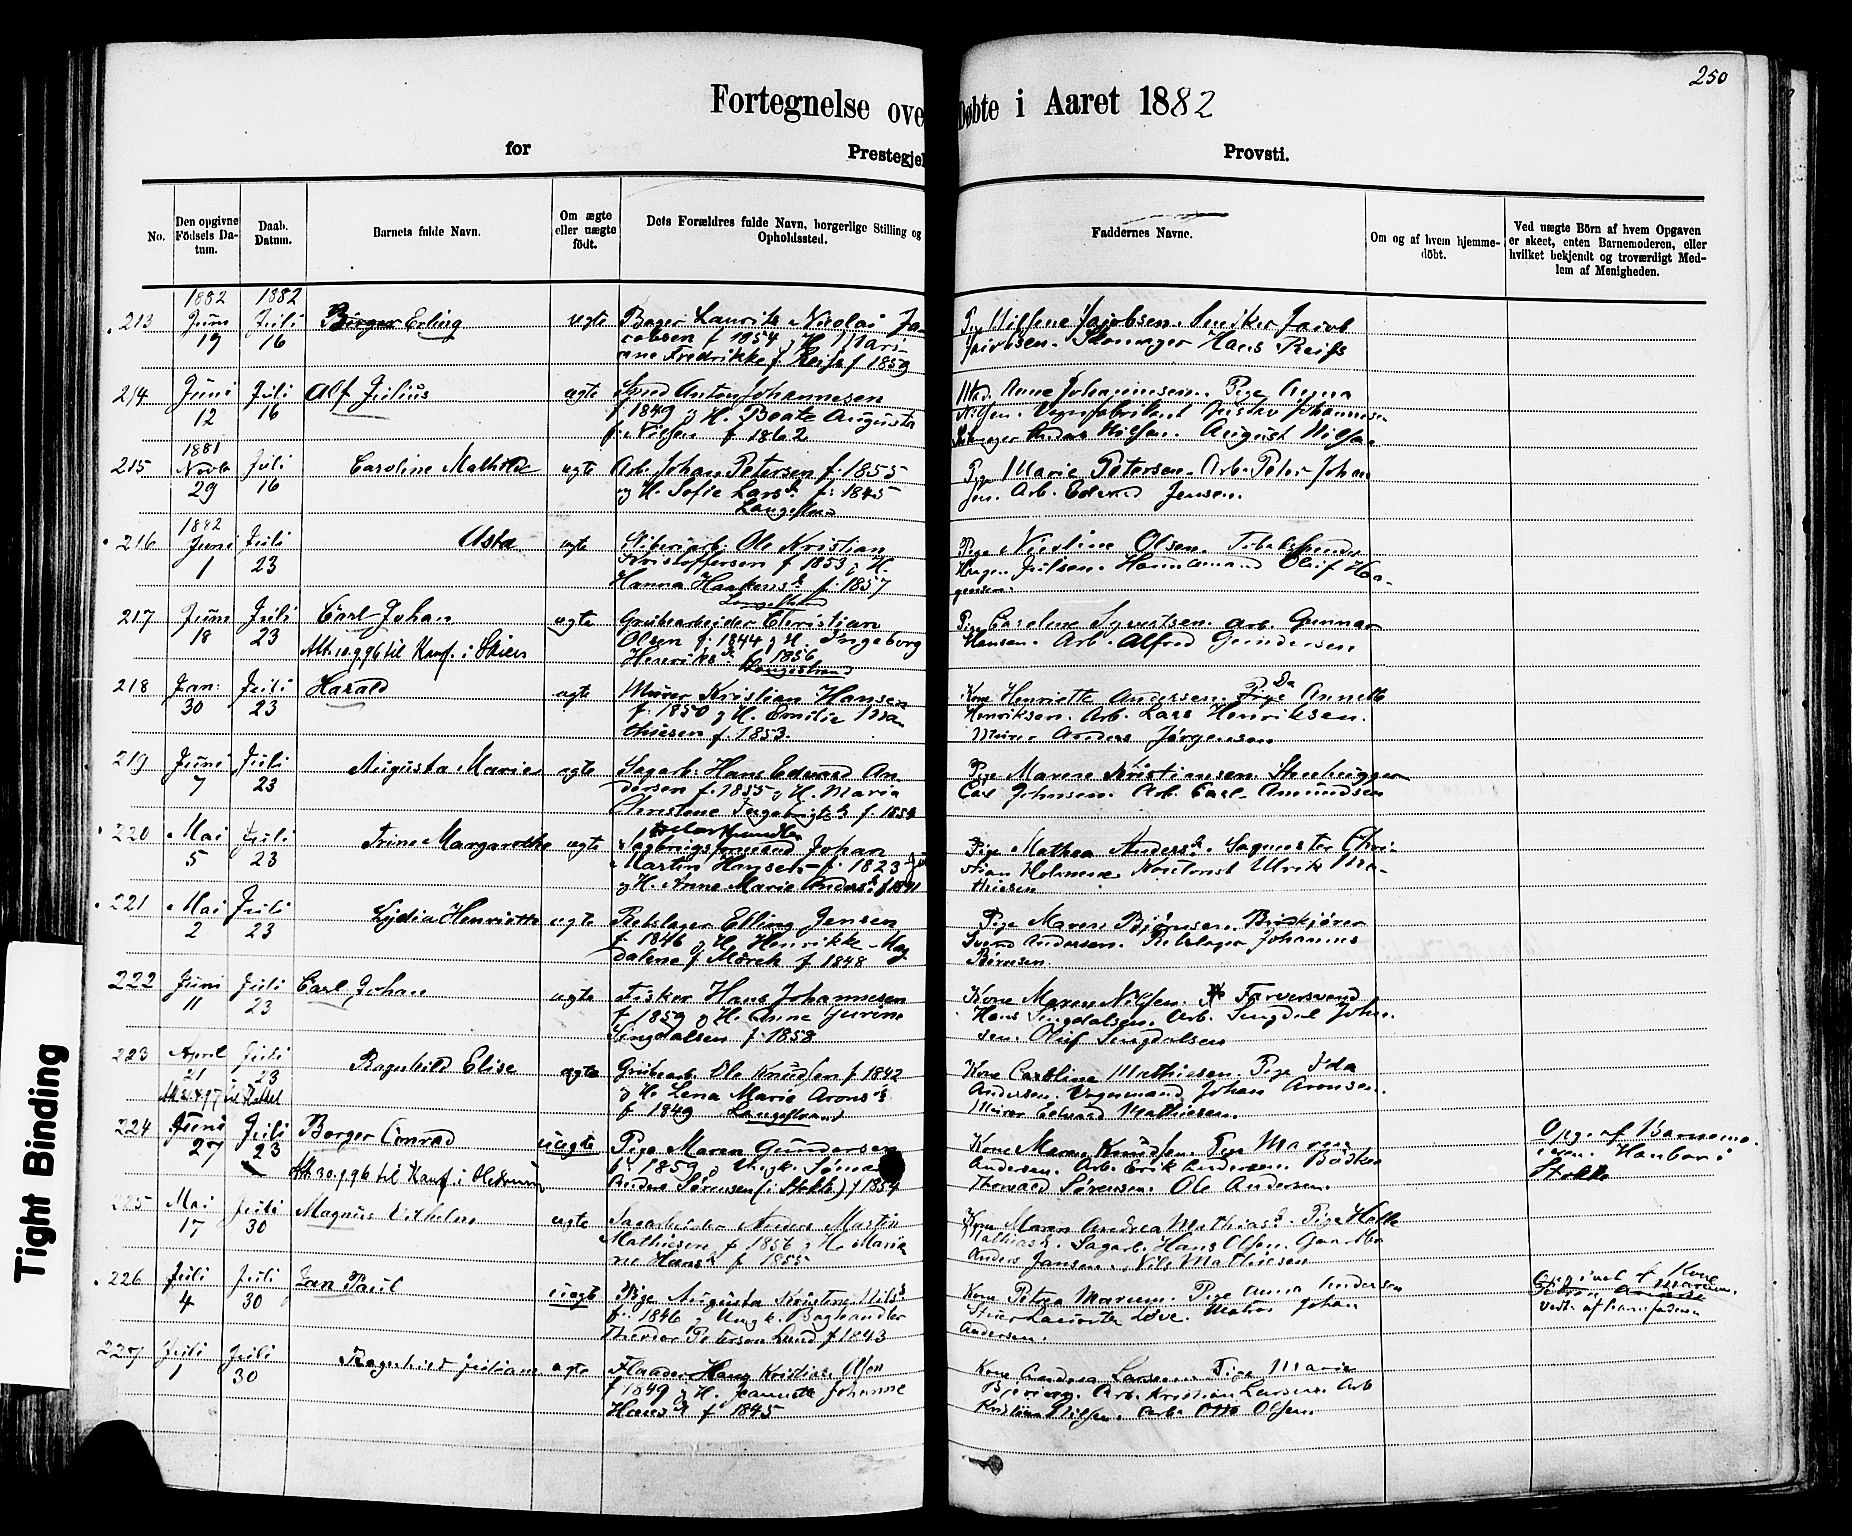 250
Fortegnelse ove Døbte i Aaret 1882
for Prestegjel Provsti.
No. Den opgivne Födsels Da-tum. Daab. Datum. Barnets fulde Navn. Om ægte eller uægte födt. Dets Forældres fulde Navn, borgerlige Stilling og Opholdssted. Faddernes Navne. Om og af hvem hjemme-döbt. Ved uægte Börn af hvem Opgaven er skeet, enten Barnemoderen, eller hvilket bekjendt og troværdigt Med-lem af Menigheden.
1882 1882
213 Juni 19 Juli 16 Birger Erling ægte Bager Lauritz Nicolai Ja-
cobsen f 1854 g H. Mari-
ane Fredrikke f. Reiss f 1859
Pige Nilsine Jacobsen. Snedker Jacob
Jacobsen. Skomager Hans Reiss
214 Juni 12 Juli 16 Alf Julius ægte Smed Anton Johannesen
f 1849 g H. Beate Augusta
f. Nilsen f 1862
Mad. Anne Johannesen. Pige Anna
Nilsen. Vognfabrikant Gustav Johannesen
Skomager Andas Nilsen. August Nilsen
1881
215 Novb 29 Juli 16 Caroline Mathilde ægte Arb. Johan Petersen f. 1855
og H. Sofie Larsd. f. 1845
Langestrand
Pige Marie Petersen. Arb. Peter Johan
sen. Arb. Edvard Jensen.
1882
216 Juni 1 Juli 23 Asta ægte Sliberiarb. Ole Kristian
Kristoffersen f 1853 g H.
Hanna Haakensd. f. 1857
Langestrand
Pige Nicoline Olsen.
Hagen Julsen. Oluf Ha-
gensen.
217 Juni 18 Juli 23 Carl Johan ægte Grubearbejder Christian
Olsen f. 1844 g H. Ingeborg
Att. 10.9.96 til Konf. i Skien
Henriksd. f. 1856
Langestrand
Pige Caroline Syvertsen. Arb. Gunnar
Hansen. Arb. Alfred Gundersen
218 Jan. 30 Juli 23 Harald ægte Murer Kristian Hansen
f. 1850 g H. Emilie Ma-
thiesen f. 1853.
Kone Henriette Andersen. Pige Do Annette
Henriksen. Arb. Lars Henriksen.
Murer Anders Jørgensen
219 Juni 7 Juli 23 Augusta Marie ægte Sagarb. Hans Edvard An
dersen f. 1855 g H. Maria
Christine Ingebrigtsd. f. 1854
Pige Maren Kristiansen. Stenhugger
Carl Johnsen. Arb. Carl Amundsen
220 Mai 5 Juli 23 Trine Margarethe ægte
Sagbrugsformand Johan
Martin Hansen f. 1823
g H. Anne Marie Andersd. f 1841
Pige Mathea Andersd. Sagmester Chri-
stian Holmene. Kontorist Ulrik Ma-
thiesen
221 Mai 2 Juli 23 Lydia Henriette ægte Rebslager Elling Jensen
f. 1846 g H. Henrikke Mag
dalene f. Mørch f 1848
Pige Maren Bjørnsen.
Svend Andersen. Rebslager Johannes
Børnsen.
222 Juni 11 Juli 23 Carl Johan ægte Fisker Hans Johannesen
f 1859 g H. Anne Gurine
Lingdalsen f. 1858
Kone Maren Nilsen. Farversvend
Hans Lingdalsen. Arb. Lingdal Johan
sen. Oluf Lingdalsen
223 April 21 Juli 23 Ragnhild Elise ægte Grubearb Ole Knudsen f 1842
g H. Lena Marie Aronsd.
f 1849 Langestrand
Kone Caroline Mathiesen. Pige Ida
Andersen. Vognmand Johan Aronsen.
Murer Edvard Mathiesen.
224 Juni 27 Juli 23 Borger Conrad uægte Pige Maren Gundersen
f. 1859 g Ungk. Sømand
Att. 30.9.96 til Konf. i
Anders Sørensen (i Stokke) f 1854
Kone Maren Knudsen. Pige Maren
Andersen. Arb. Erik Andersen. Bødker
Thorvald Sørensen. Ole Andersen.
Opg. af Barnemo-
deren. Han bor i
Stokke
225 Mai 17 Juli 30 Magnus Vilhelm ægte Sagarbeider Anders Martin
Mathiesen f 1856 g H. Maria
ne Hansd. f 1855
Kone Maren Andrea Mathiasd. Pige Helle
Mathiasd. Sagarb. Hans Olsen. Gaardbr.
Anders Jansen. Nils Mathiesen
226 Juli 4 Juli 30 Jan Paul uægte Pige Augusta Kristine Nilsd.
f. 1846 g Ungk. Boghandler
Theodor Peterson Lund f 1843
Kone Petrea Marum. Pige Anna Andersen
Matros Johan
Andersen.
Opgivet af Kone
227 Juli 1 Juli 30 Ragnhild Juliane ægte Flaader Hans Kristian Olsen
f 1849 g H. Jeanette Johanne
Hansd. f 1845
Kone Andrea Larsen. Pige Marie
Bjerving. Arb. Kristian Larsen. Arb
Kristian Nilsen. Arb. Otto Olsen.
Tight Binding